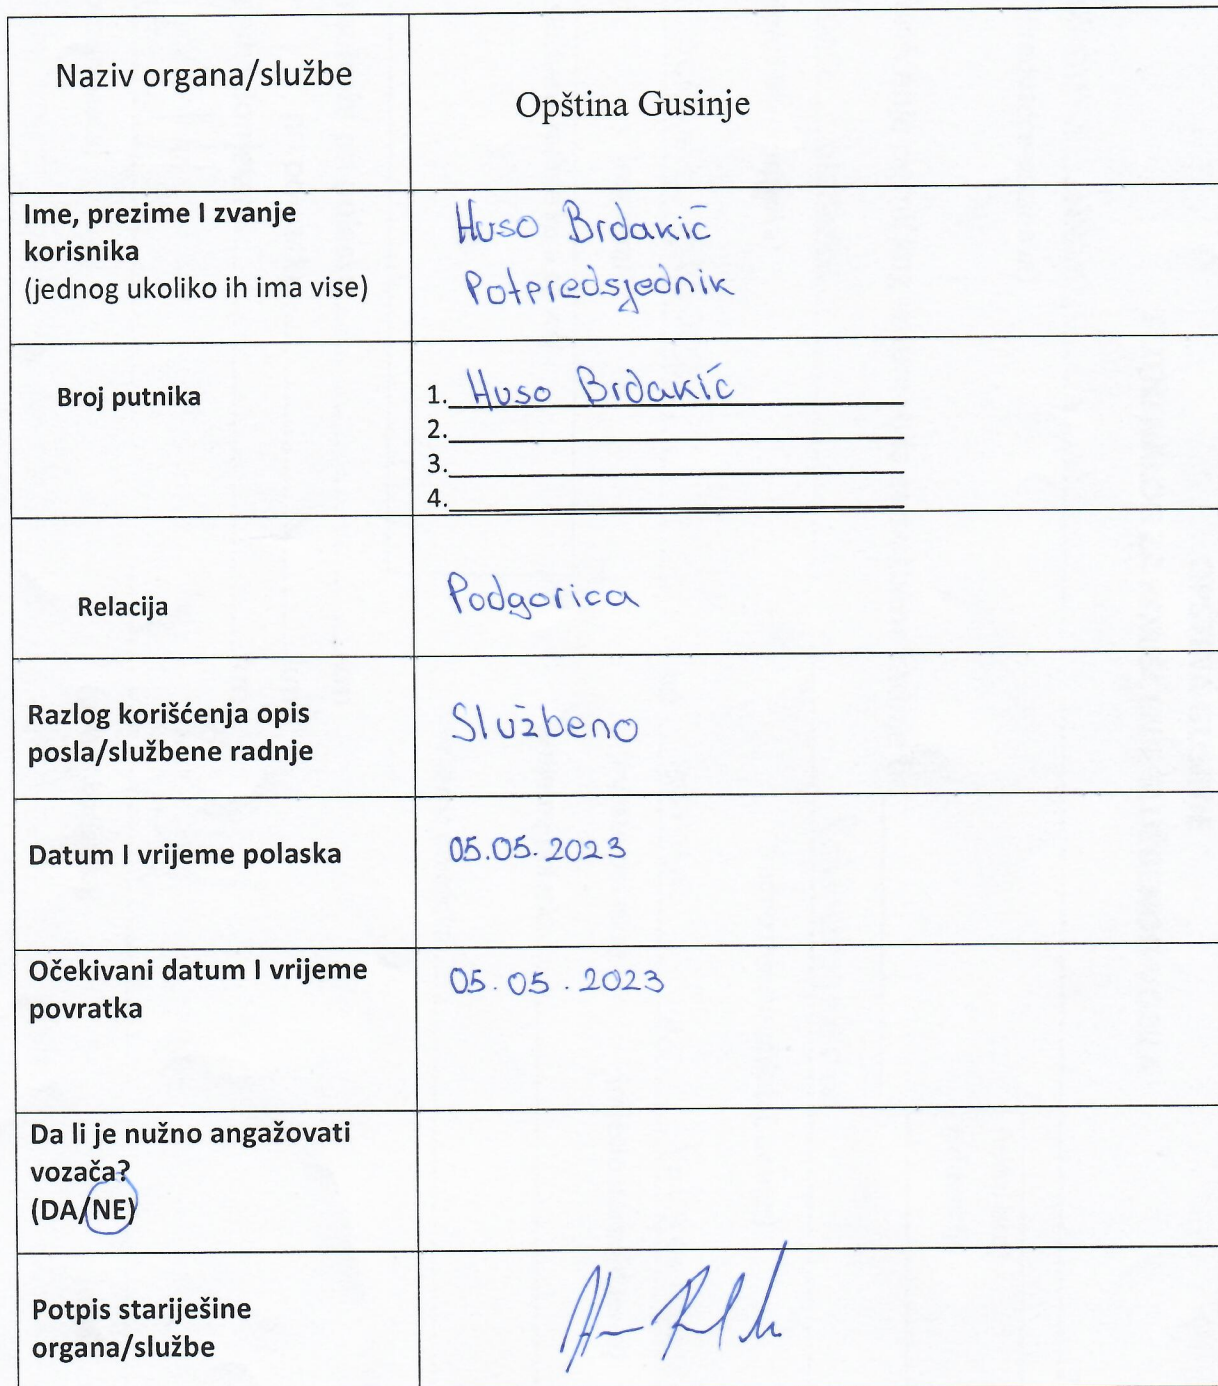 Naziv organa/službe
Opština Gusinje
Ime, prezime I zvanje
korisnika
(jednog ukoliko ih ima vise)
Huso Brdakić
Potpredsjednik
Broj putnika
1. Huso Brdakić
2.
3.
4.
Relacija
Podgorica
Razlog korišćenja opis
posla/službene radnje
Službeno
Datum I vrijeme polaska
05.05.2023
Očekivani datum I vrijeme
povratka
05.05.2023
Da li je nužno angažovati
vozača?
(DA/NE)
Potpis starješine
organa/službe